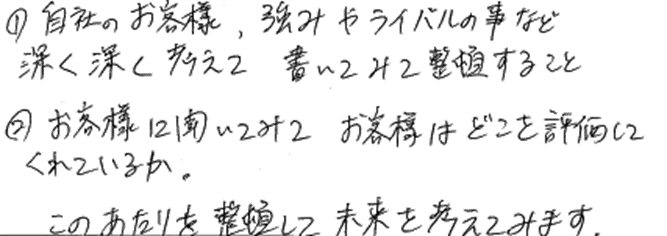 ① 自社のお客様、強みやライバルの事など
深く深く考えて 書いてみて整理すること
② お客様に聞いてみて お客様はどこを評価して
くれているか。
このあたりを整理して未来を考えてみます。